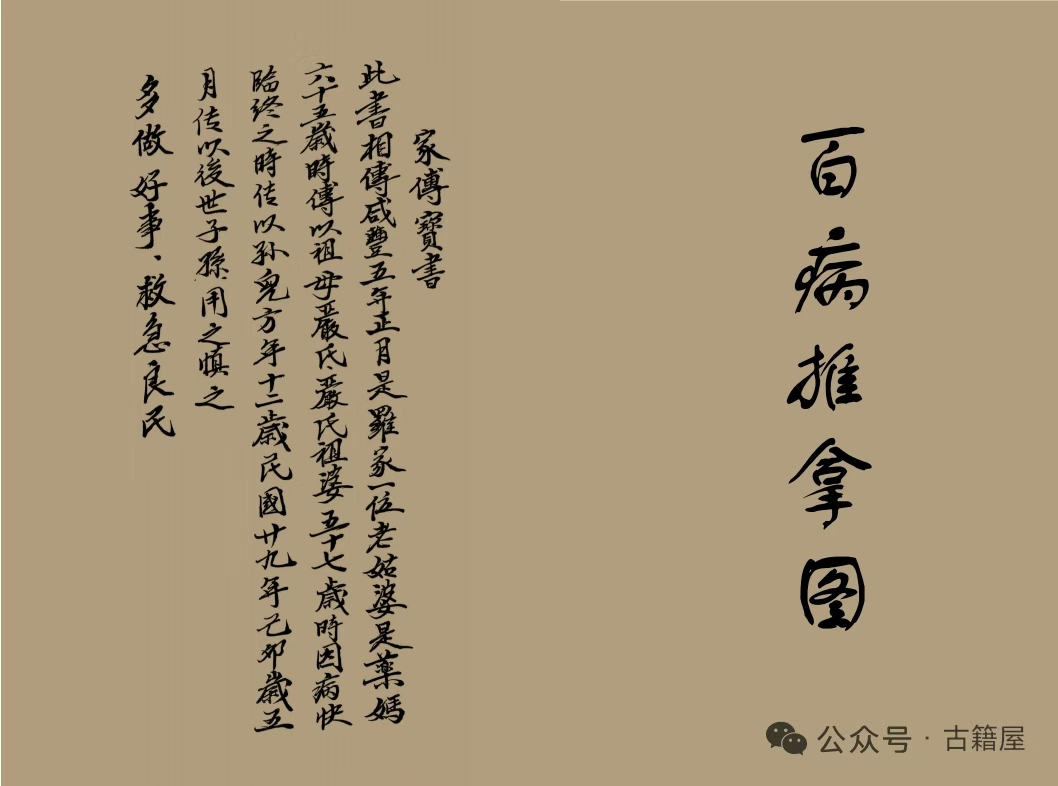 百病推拿图
家傳寶書
此書相傳咸豐五年正月是羅家一位老姑婆是藥媽
六十五歲時傳以祖母嚴氏嚴氏祖婆五十七歲時因病快
臨終之時传以孙兒方年十二歲民國廿九年己卯歲五
月传以後世子孫用之慎之
多做好事、救急良民
公众号 · 古籍屋